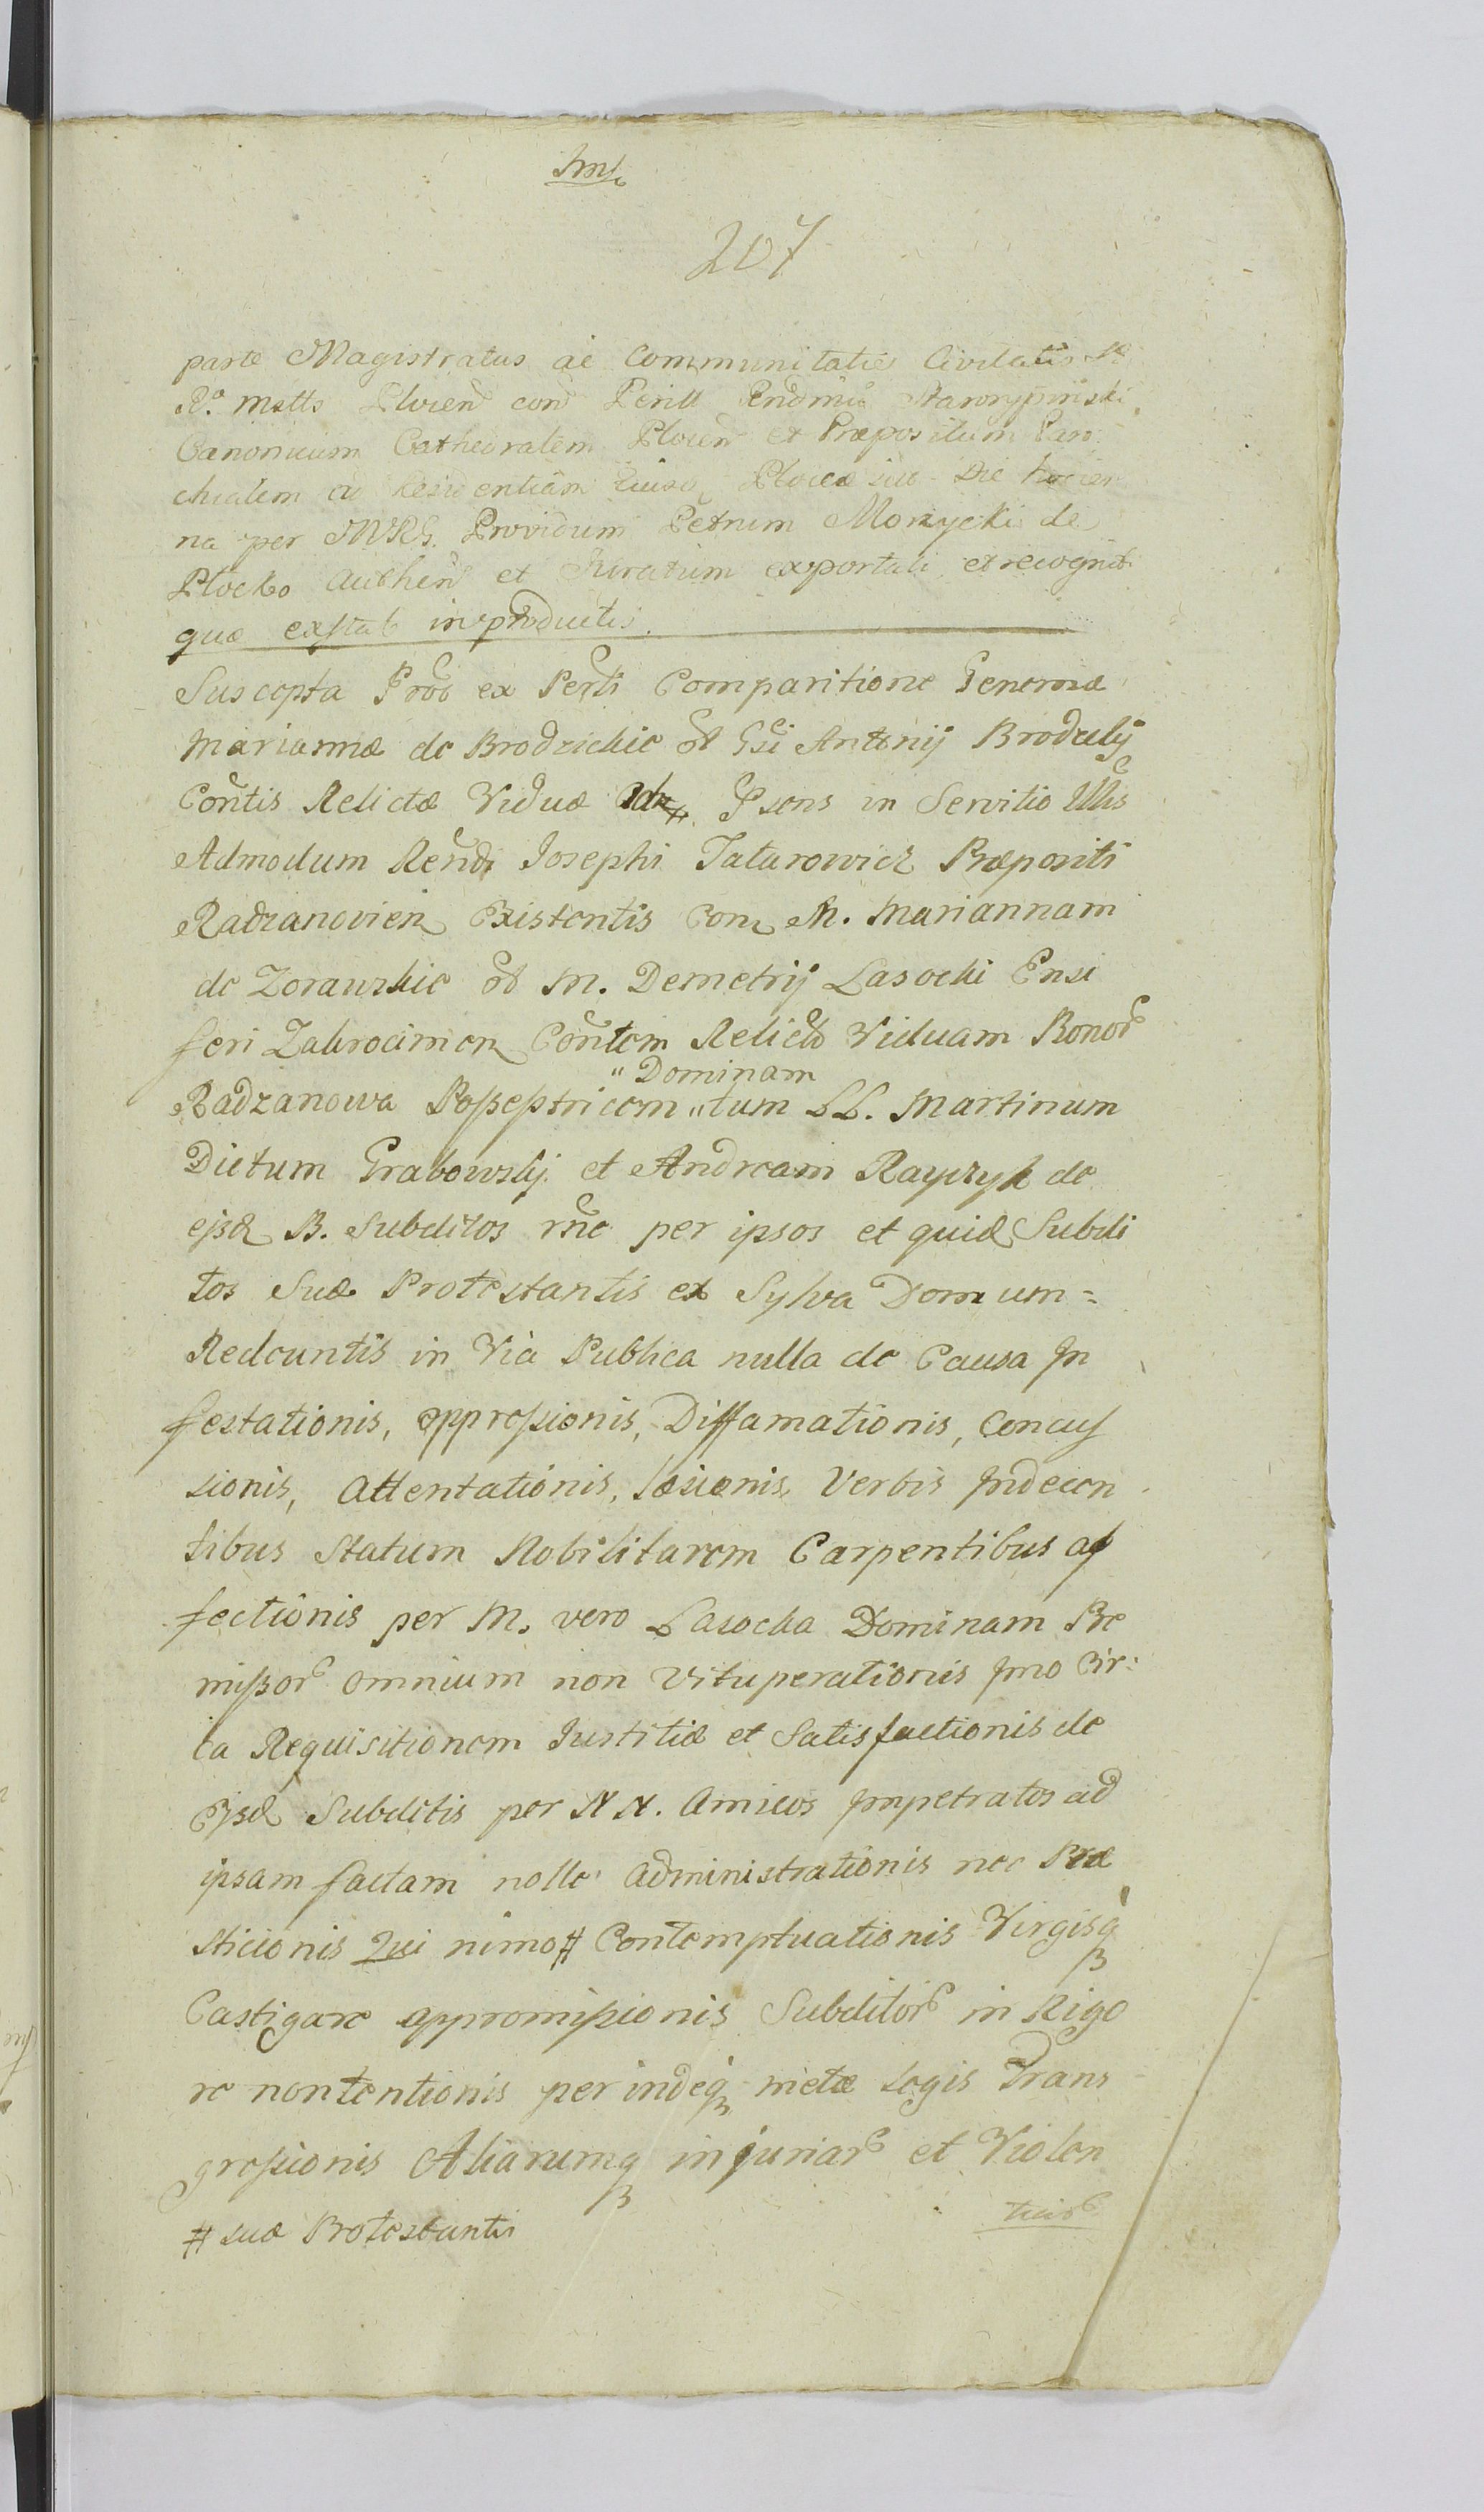 207
parte Magistratus ac Communitatis Civilatis
R.a Mttis Plocen con Perill Rndmu Starorypinski
Canonicum Cathedralem Plocen et Præpositum Paro
chialem
na per MRG. Providum Petrum Morzycki de
Plocko Authen et Juratum exportati et recognit
quæ exstat in productis.
Suscepta Prot ex Perti Comparitione Generosæ
Mariannæ de Brodzickie ol Gsi Antonij Brodzkij
Contis Relictæ Viduæ Psens in Servitio Illis
Admodum Rendi Josephi Tatarowicz Præpositi
Radzanovien Existentis Con M. Mariannam
de Zorawskie ol M. Demetrij Lasocki Ensi
feri Zakrocimen Contem Relict Viduam Bonor
"Dominam
Radzanowa Possestricem "tum LL. Martinum
Dictum Grabowskj et Andream Rayczyk de
ejsd B. Subditos rne per ipsos et quid Subdi
tos Suæ Protestantis ex Sylva Domum=
Redeuntis in Via Publica nulla de Causa In
festationis, oppressionis, Diffamationis, Concus
sionis, Attentationis, Læsionis, Verbis Indecen
tibus Statum Nobilitarem Carpentibus af
fectionis per M. vero Lasocka Dominam Pre
missor omnium non Vituperationis Imo Cir:
ca Requisitionem Justitiæ et Satisfactionis de
Ejsd Subditis per NN. Amicos Impetratos ad
ipsam factam nolle Administrationis nec Præ
sticionis Qui nimo # Contemptuationis Virgisq
Castigare appromissionis Subditor in Rigo
re nontentionis per indeq metæ Legis Trans
gressionis Aliarumq injuriar et Violen
tiar
# suæ Protestantis